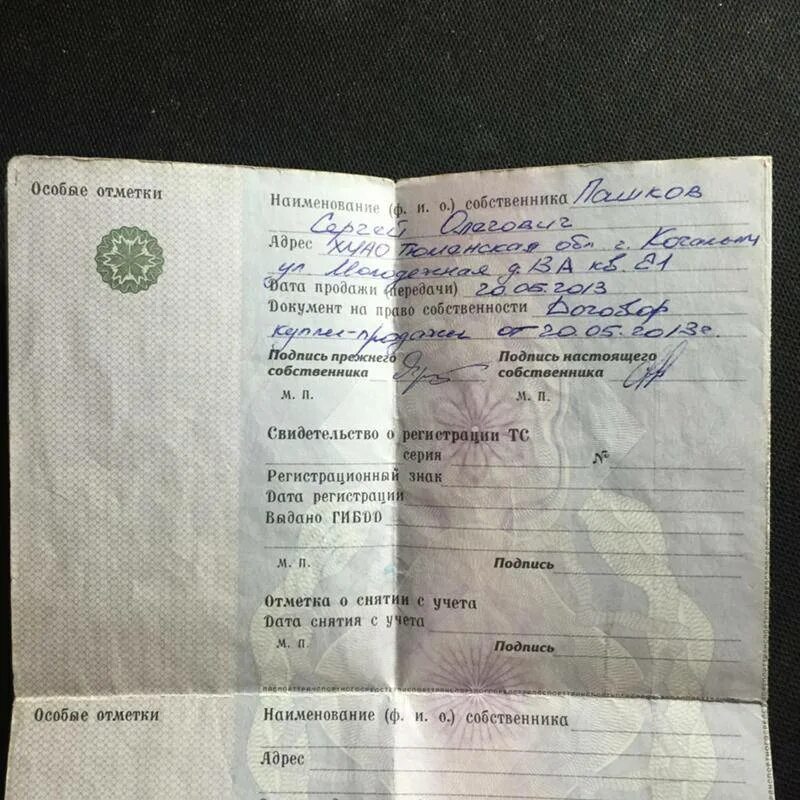 Особые отметки
Наименование (ф. и. о.) собственника Пашков
Сергей Олегович
Адрес ХМАО Тюменская обл. г. Когалым
ул. Молодежная д. 13А кв. 21
Дата продажи (передачи) 20.05.2013
Документ на право собственности Договор
купли-продажи от 20.05.2013г.
Подпись прежнего собственника
Подпись настоящего собственника
М. П.
М. П.
Свидетельство о регистрации ТС
серия №
Регистрационный знак
Дата регистрации
Выдано ГИБДД
М. П. Подпись
Отметка о снятии с учета
Дата снятия с учета
М. П. Подпись
Особые отметки
Наименование (ф. и. о.) собственника
Адрес